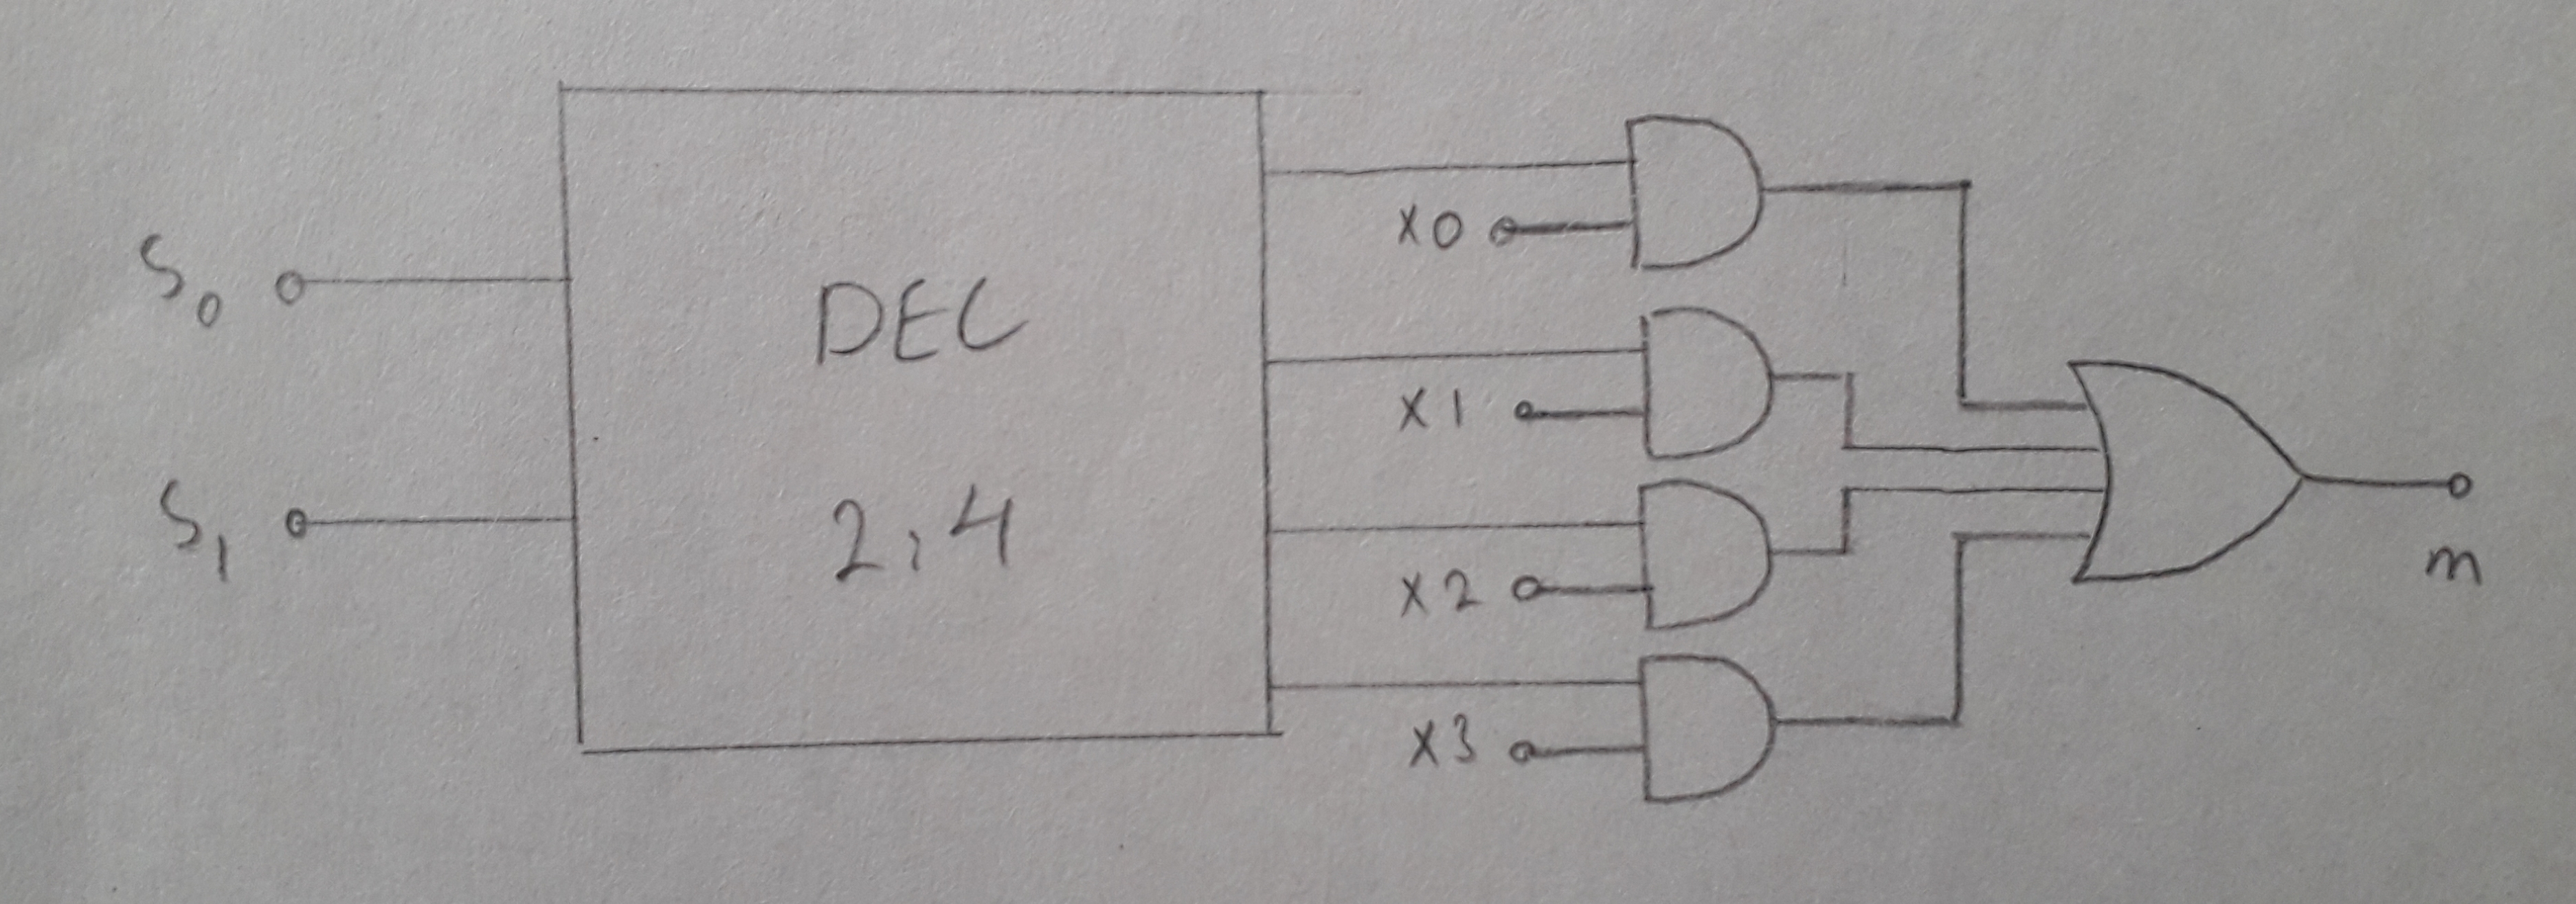 S0
S1
DEC
2:4
X0
X1
X2
X3
m